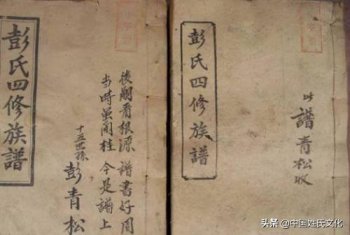 彭氏四修族譜
後朝看根源 譜書好用
当时虽闲柱 今是譜上
十五世孫 彭青松
彭氏四修族譜
此譜青松收
头条 @中国姓氏文化